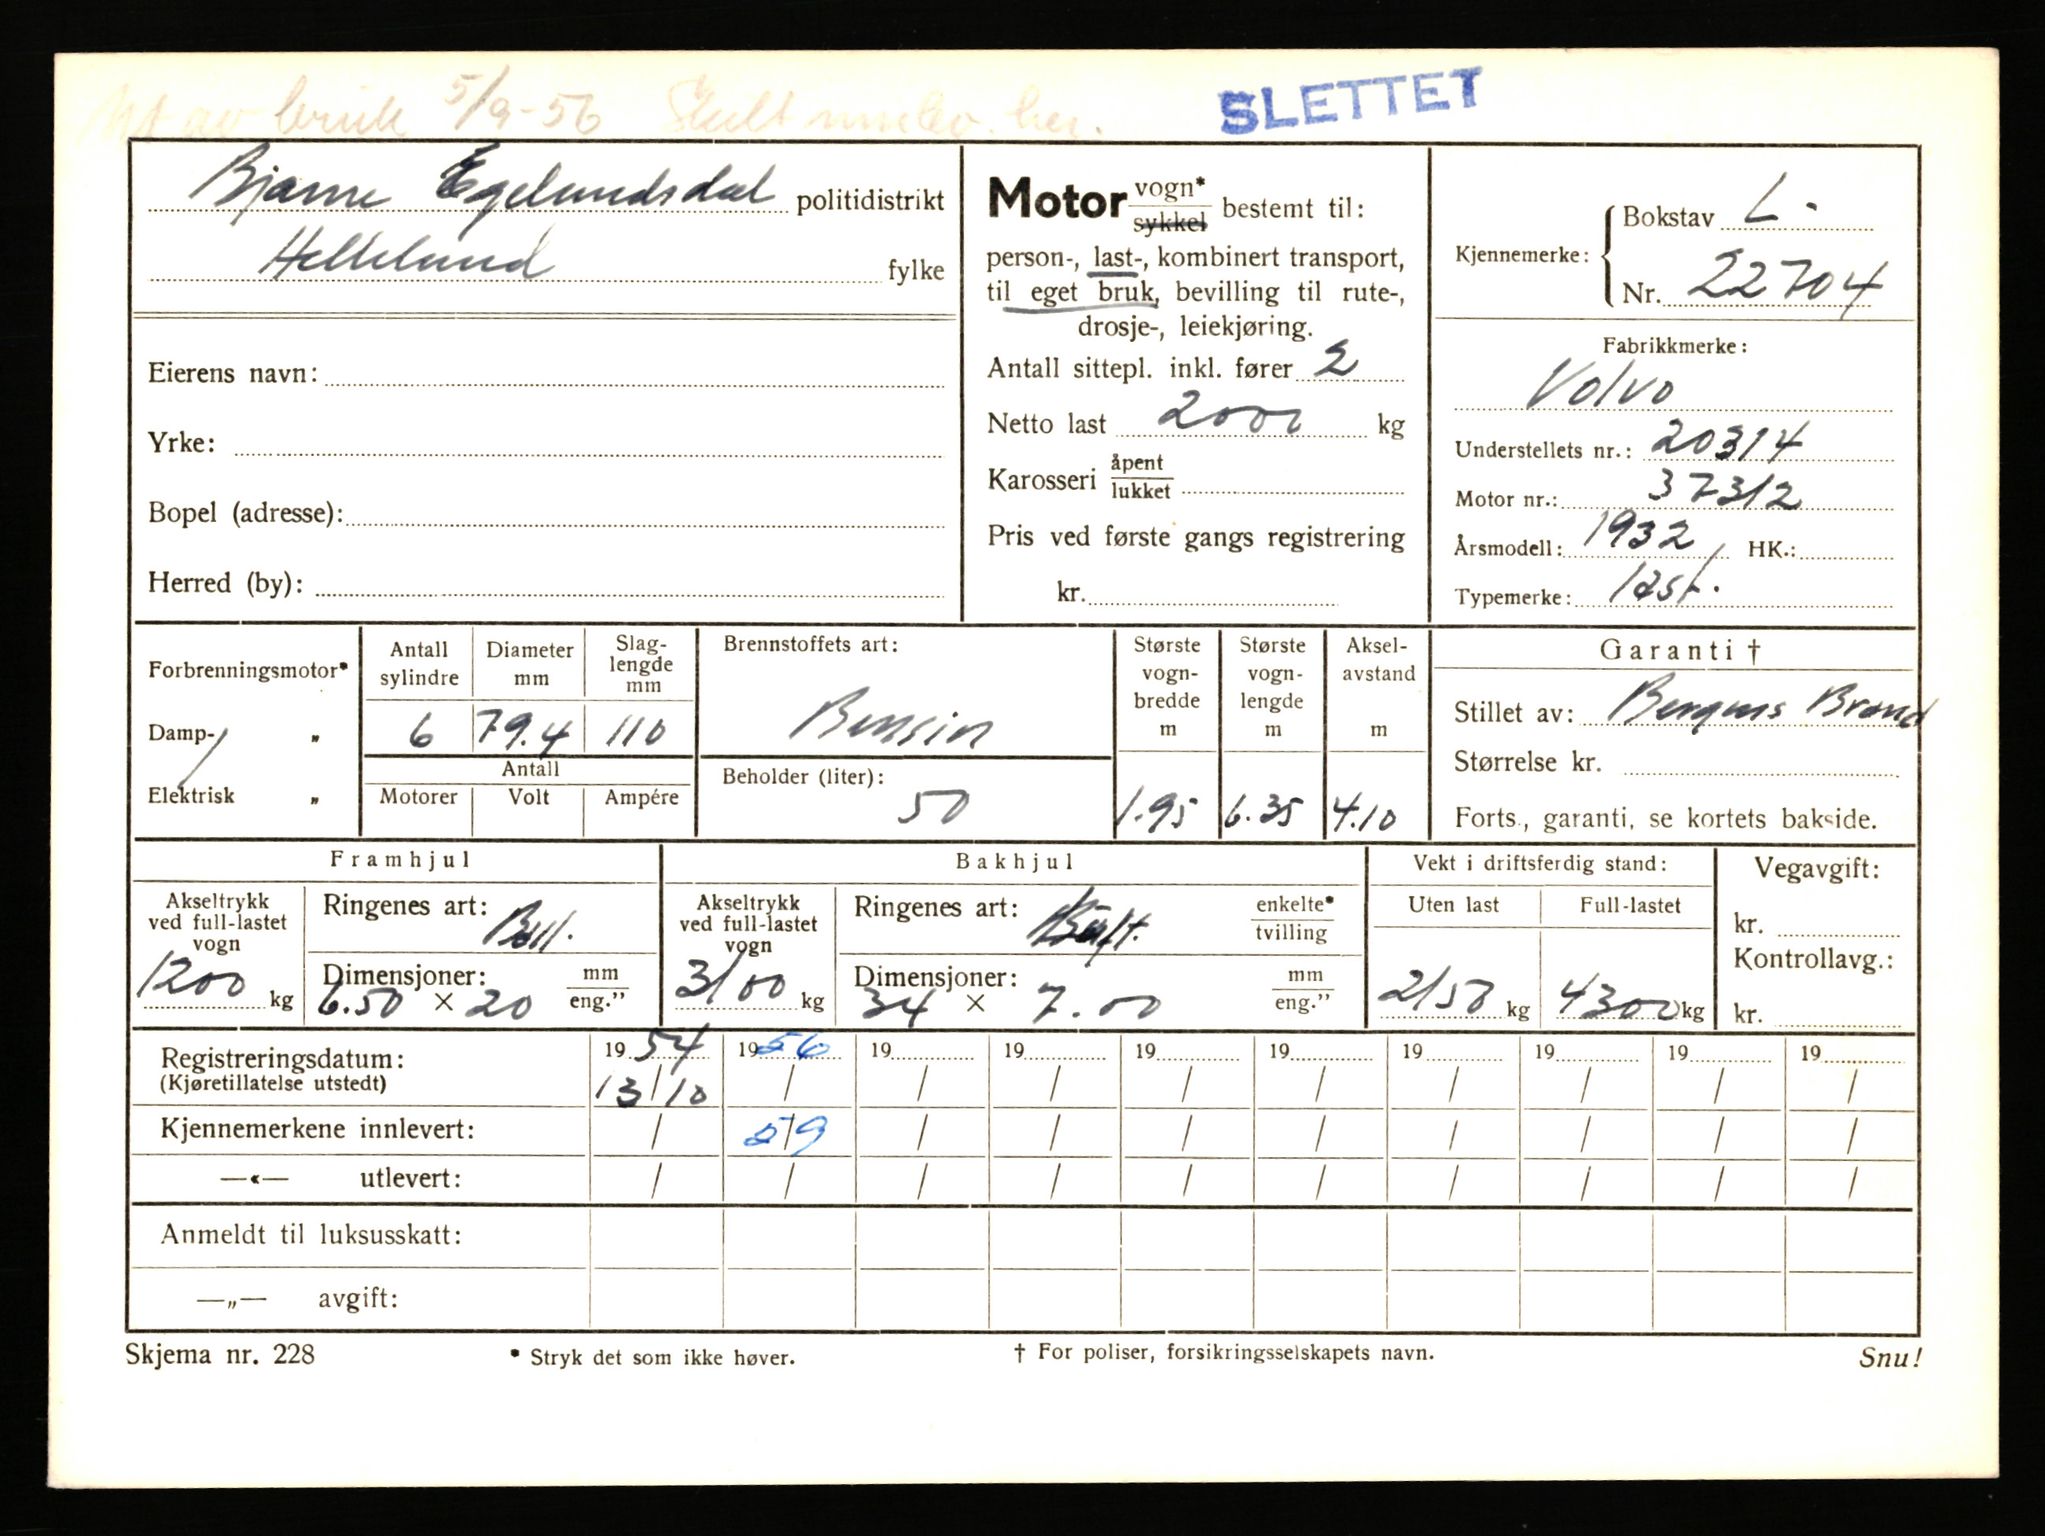 Ut av bruk 5/9-56 Skilt innlev. her. SLETTET
Bjarne Egelundsdal politidistrikt
Hellelund fylke
Eierens navn:
Yrke:
Bopel (adresse):
Herred (by):
Motor vogn* sykkel bestemt til:
person-, last-, kombinert transport,
til eget bruk, bevilling til rute-,
drosje-, leiekjøring.
Antall sittepl. inkl. fører 2
Netto last 2000 kg
Karosseri åpent lukket
Pris ved første gangs registrering
kr.
Kjennemerke: Bokstav L.
Nr. 22704
Fabrikkmerke:
Volvo
Understellets nr.: 20314
Motor nr.: 37312
Årsmodell: 1932 HK.:
Typemerke: last.
Forbrenningsmotor*
Damp- „
Elektrisk „
Antall sylindre
6
Diameter mm
79.4
Slag-
lengde
mm
110
Antall
Motorer Volt Ampére
Brennstoffets art:
Bensin
Beholder (liter):
50
Største
vogn-
bredde
m
1.95
Største
vogn-
lengde
m
6.35
Aksel-
avstand
m
4.10
Garanti †
Stillet av: Bergens Brand
Størrelse kr.
Forts., garanti, se kortets bakside.
Framhjul
Akseltrykk
ved full-lastet
vogn
1200 kg
Ringenes art: Ball.
Dimensjoner: mm
6.50 × 20 eng."
Bakhjul
Akseltrykk
ved full-lastet
vogn
3100 kg
Ringenes art: enkelte*
tvilling
Dimensjoner: mm
34 × 7.00 eng."
Vekt i driftsferdig stand:
Uten last Full-lastet
2150 kg 4300 kg
Vegavgift:
kr.
Kontrollavg.:
kr.
Registreringsdatum: 19 54 19 56 19 19 19 19 19 19 19 19
(Kjøretillatelse utstedt) 13/10 / / / / / / / / /
Kjennemerkene innlevert: / 5/9 / / / / / / / /
—«— utlevert: / / / / / / / / / /
Anmeldt til luksusskatt:
—„— avgift:
Skjema nr. 228 * Stryk det som ikke høver. † For poliser, forsikringsselskapets navn. Snu!